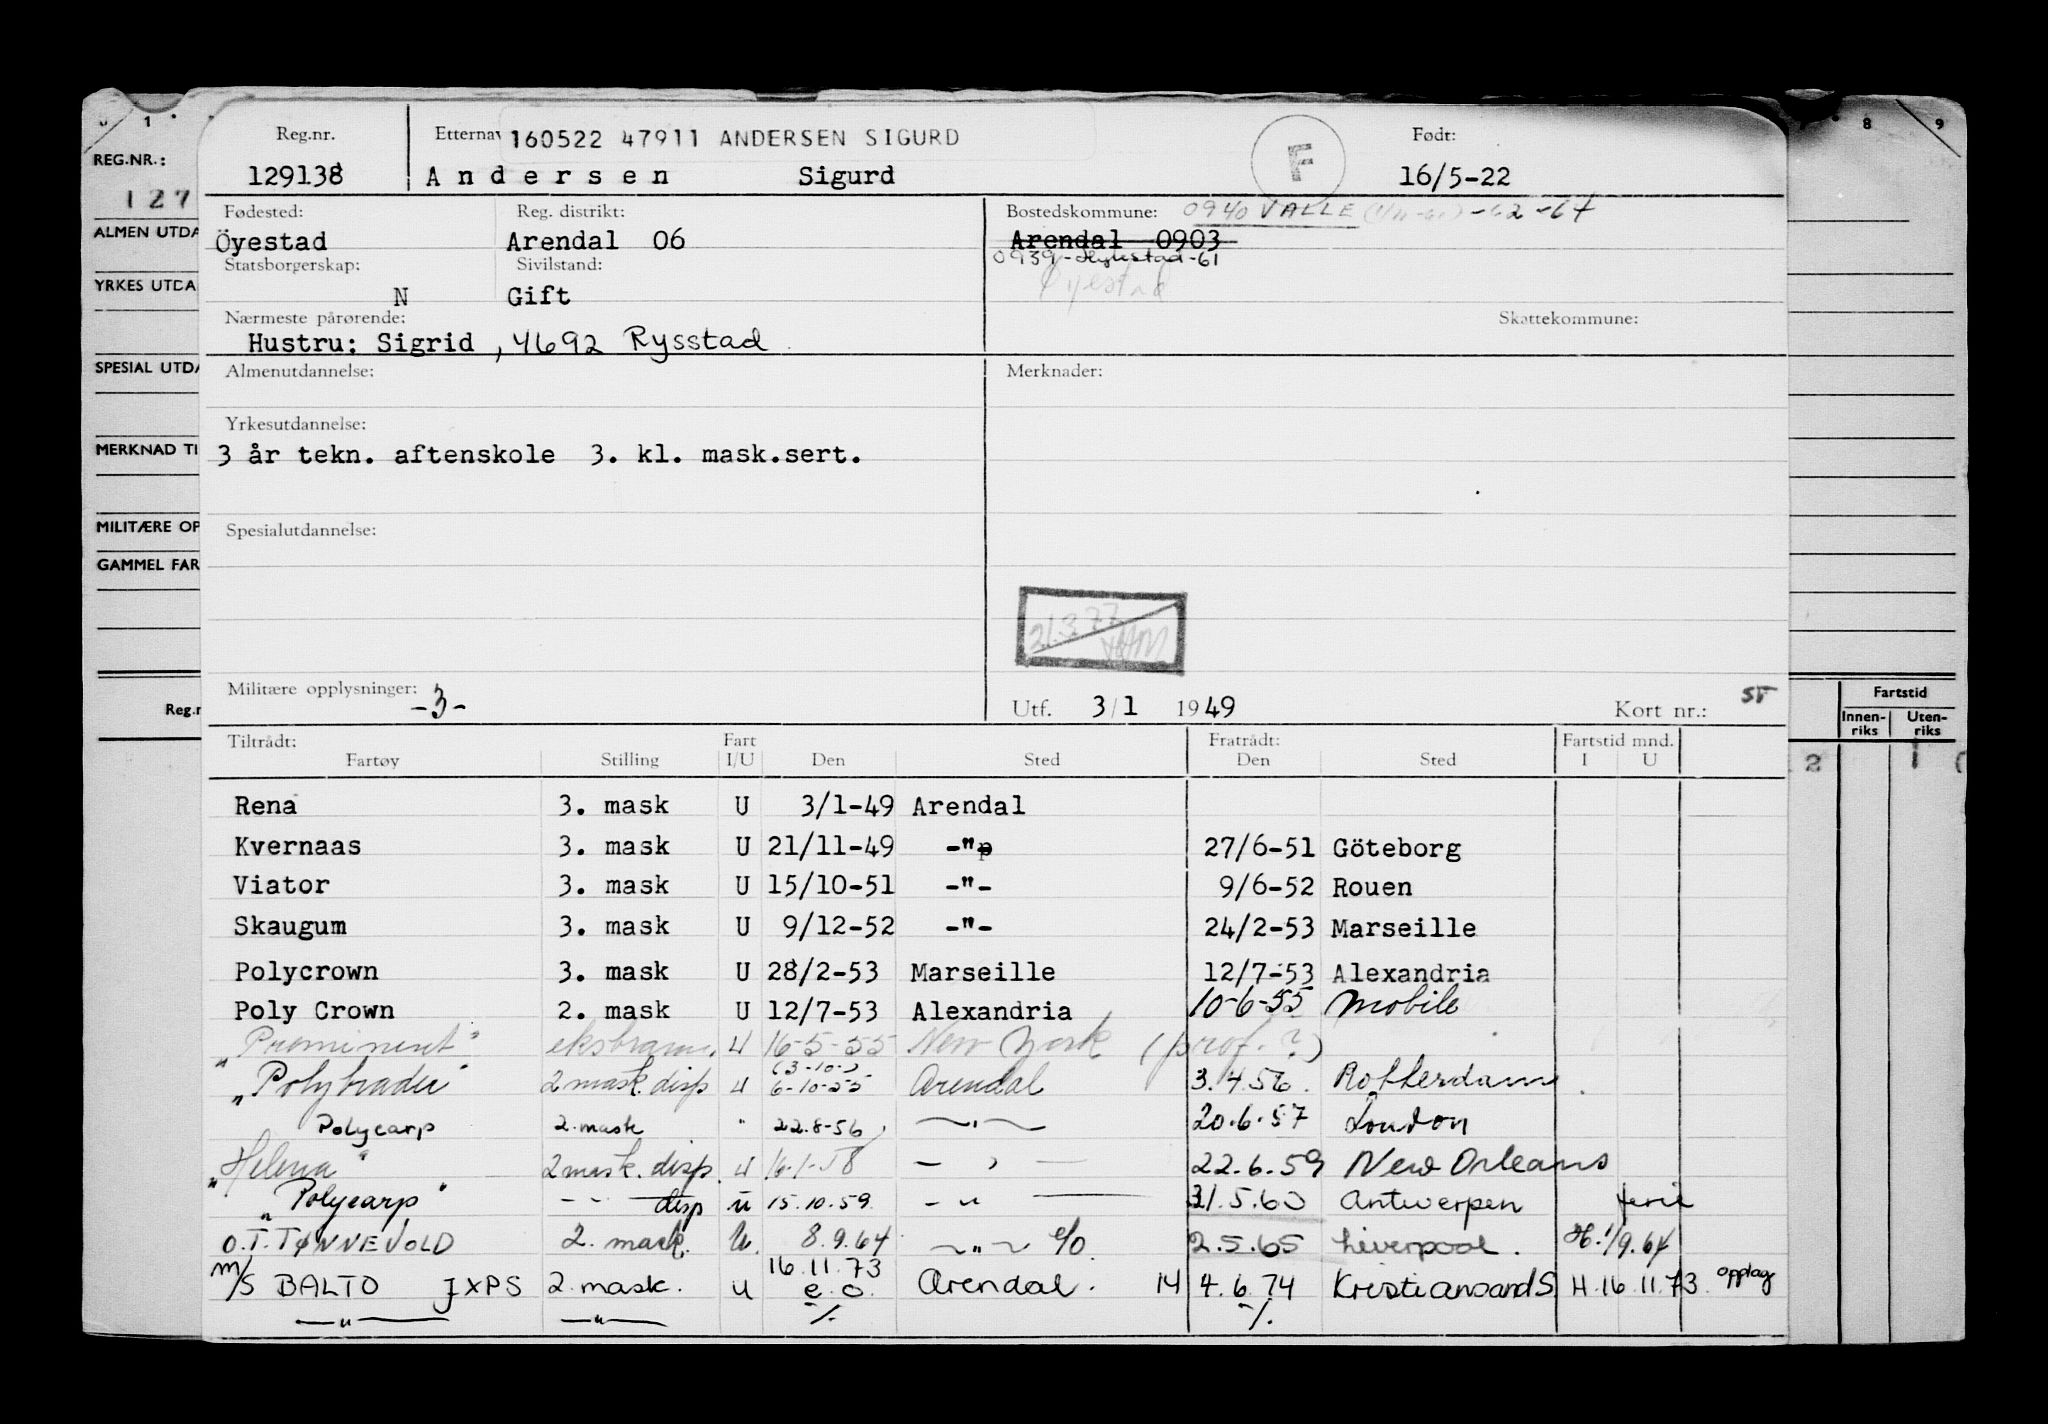 Reg.nr. Etternav 160522 47911 ANDERSEN SIGURD F Født:
129138 Andersen Sigurd 16/5-22
Fødested: Reg. distrikt: Bostedskommune: 0940 VALLE -62-64
Öyestad Arendal 06 Arendal 0903
Statsborgerskap: Sivilstand: 0939-Hylestad-61
N Gift Øyestad
Nærmeste pårørende: Skattekommune:
Hustru: Sigrid, 4692 Rysstad
Almenutdannelse: Merknader:
Yrkesutdannelse:
3 år tekn. aftenskole 3. kl. mask.sert.
Spesialutdannelse:
21.3.77
Militære opplysninger: -3- Utf. 3/1 1949 Kort nr.: ST
Tiltrådt: Fart Fratrådt: Fartstid mnd.
Fartøy Stilling I/U Den Sted Den Sted I U
Rena 3. mask U 3/1-49 Arendal
Kvernaas 3. mask U 21/11-49 -"- 27/6-51 Göteborg
Viator 3. mask U 15/10-51 -"- 9/6-52 Rouen
Skaugum 3. mask U 9/12-52 -"- 24/2-53 Marseille
Polycrown 3. mask U 28/2-53 Marseille 12/7-53 Alexandria
Poly Crown 2. mask U 12/7-53 Alexandria 10-6-55 Mobile
"Prominent" U 16-5-55 New York (prof.?)
(3-10-)
"Polytrader" 2 mask. disp U 6-10-55 Arendal 3.4.56. Rotterdam
Polycarp 2. mask " 22.8-56 -"- 20.6.57 London
"Helena" 2 mask. disp. U 16-1-58 - " - 22.6.59 New Orleans
"Polycarp" - " - disp u 15.10.59 - " - 31.5.60 Antwerpen ferie
O.T. TØNNEVOLD 2. mask. U. 8.9.64 -"- e/o 2.5.65 Liverpool. H.1/9.64
M/S BALTO JXPS 2. mask. U 16.11.73 e.o. Arendal. 14 4.6.74 Kristiansand S H.16.11.73. opplag
-"- -"- -/. -/.
REG.NR.:
127
ALMEN UTDA
YRKES UTDA
SPESIAL UTDA
MERKNAD TI
MILITÆRE OP
GAMMEL FAR
Reg.n
1 8 9
Fartstid
Innen-riks Uten-riks
2 1